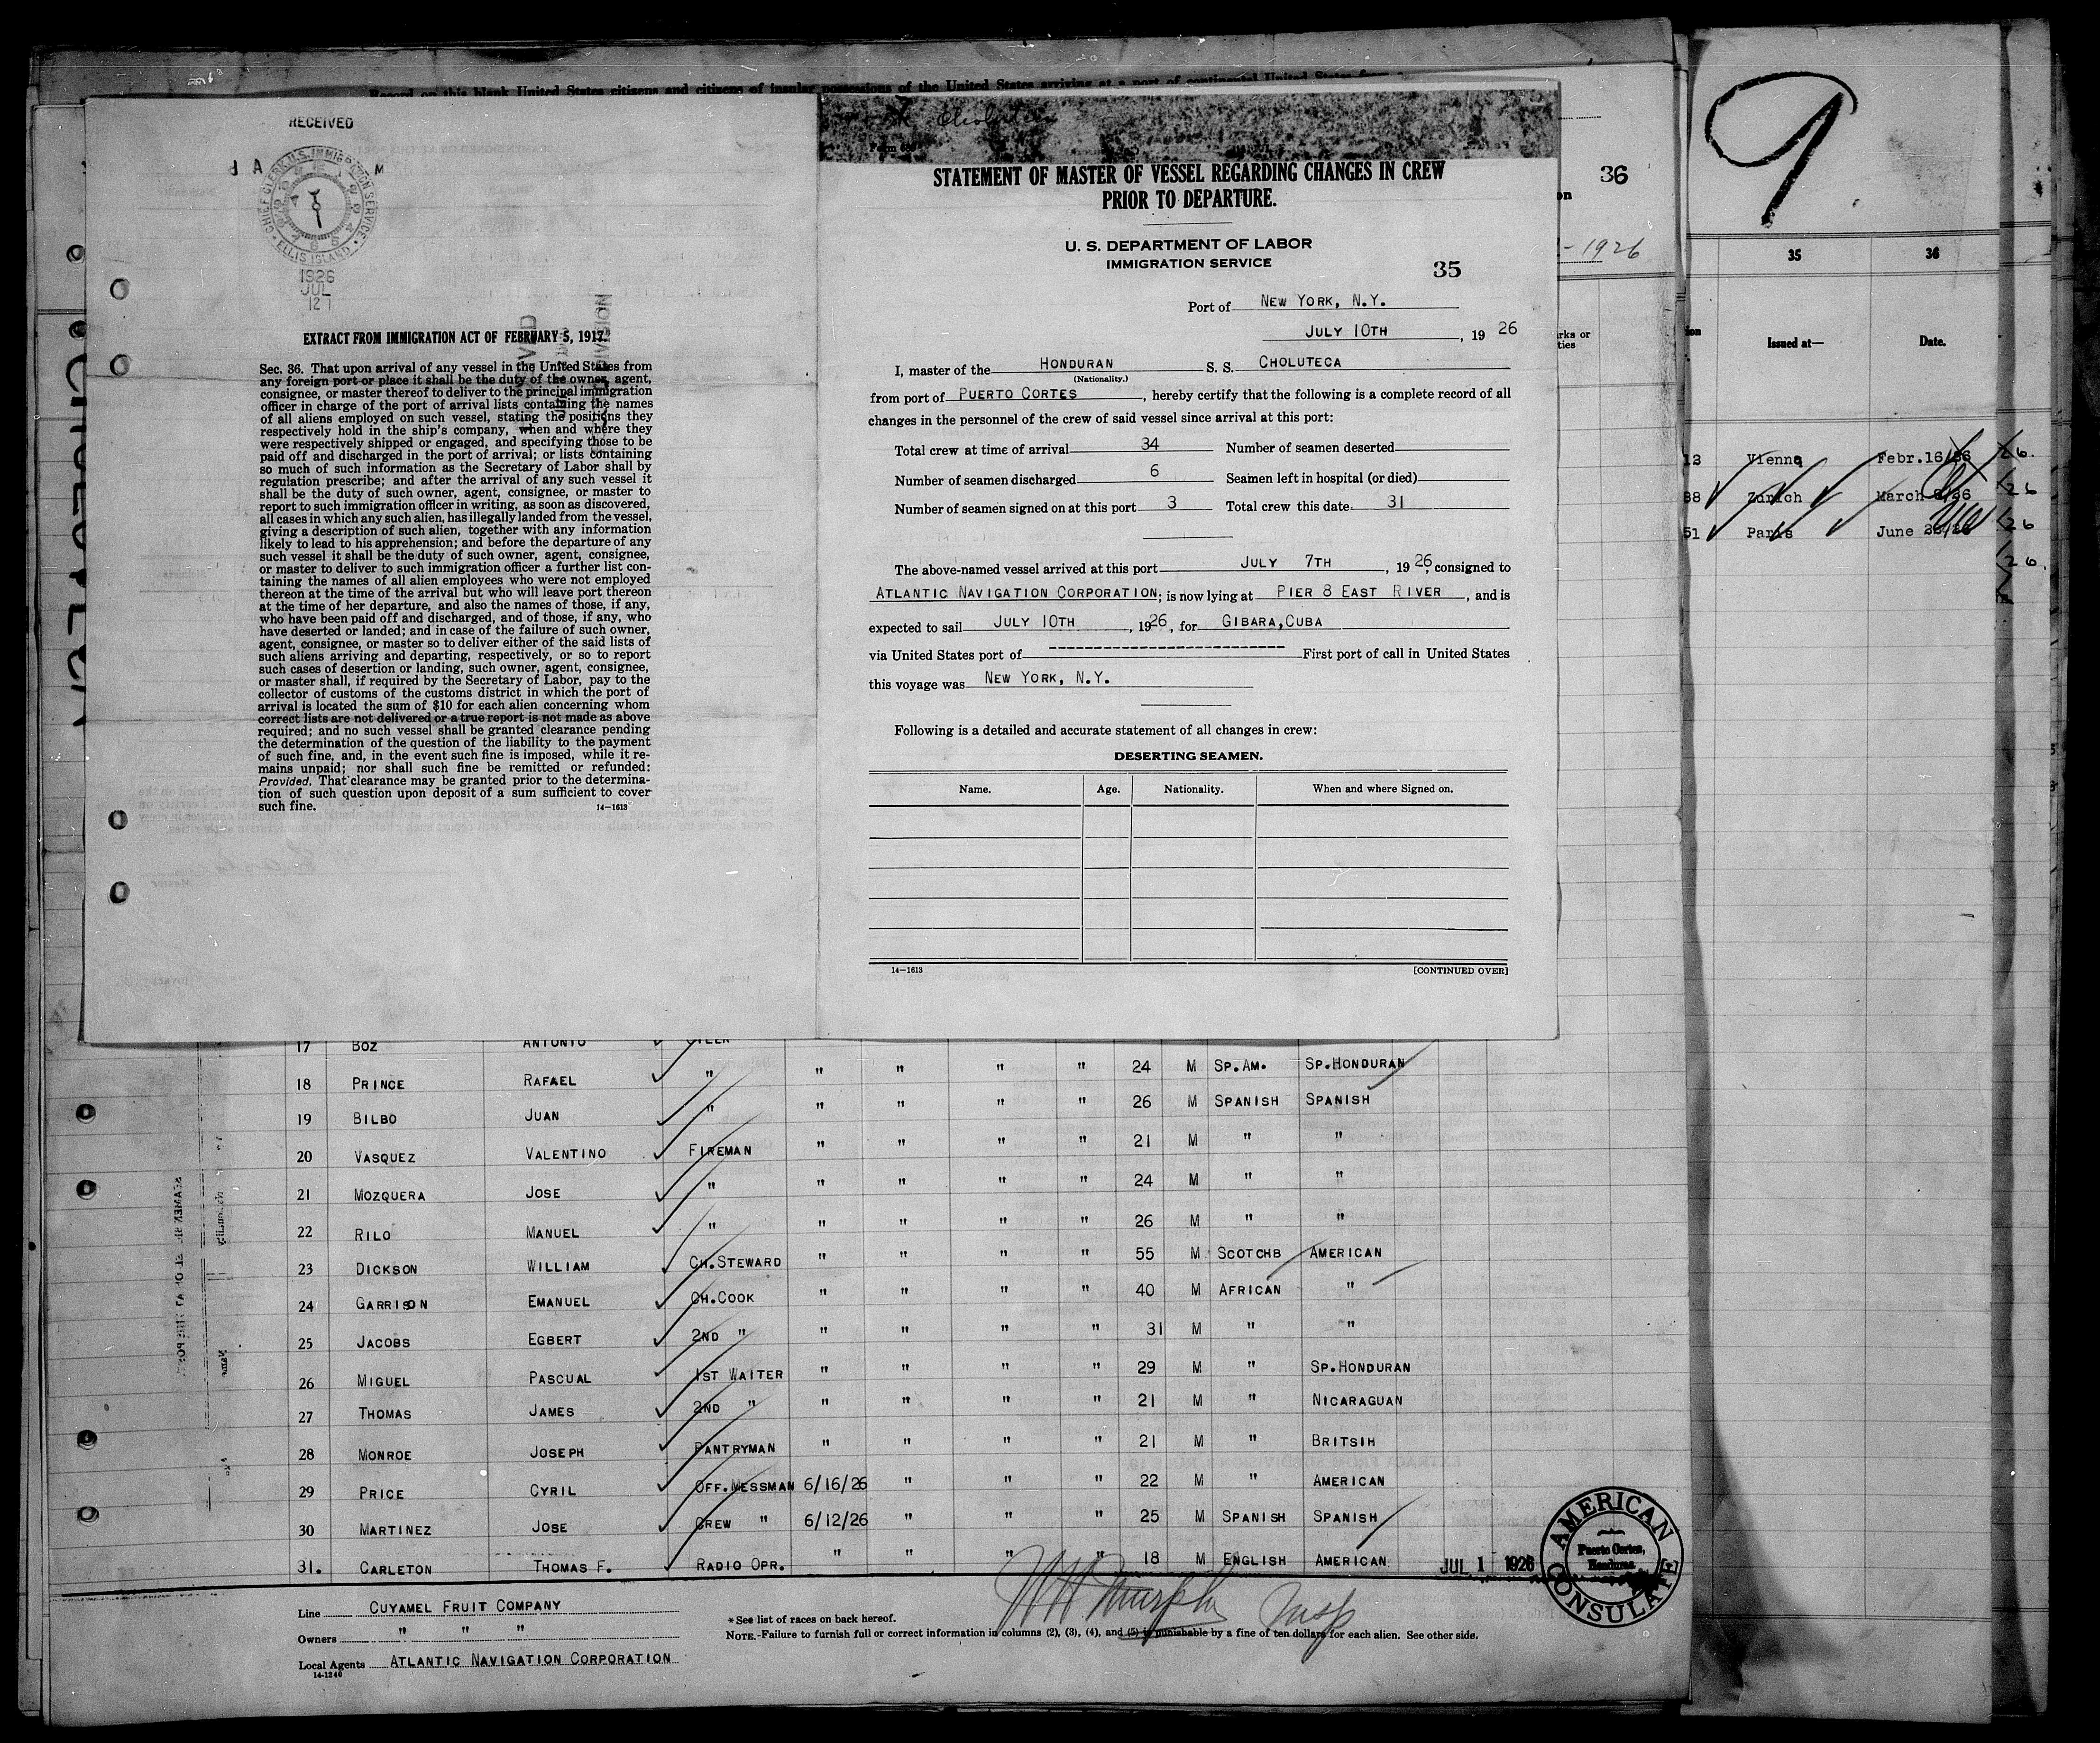 Record on this blank United States citizens and citizens of insular possessions of the United States arriving at a port of continental United States from
RECEIVED
A M
CHIEF CLERK U.S. IMMIGRATION SERVICE
ELLIS ISLAND
1926
JUL
12
EXTRACT FROM IMMIGRATION ACT OF FEBRUARY 5, 1917.
Sec. 36. That upon arrival of any vessel in the United States from
any foreign port or place it shall be the duty of the owner, agent,
consignee, or master thereof to deliver to the principal immigration
officer in charge of the port of arrival lists containing the names
of all aliens employed on such vessel, stating the positions they
respectively hold in the ship's company, when and where they
were respectively shipped or engaged, and specifying those to be
paid off and discharged in the port of arrival; or lists containing
so much of such information as the Secretary of Labor shall by
regulation prescribe; and after the arrival of any such vessel it
shall be the duty of such owner, agent, consignee, or master to
report to such immigration officer in writing, as soon as discovered,
all cases in which any such alien, has illegally landed from the vessel,
giving a description of such alien, together with any information
likely to lead to his apprehension; and before the departure of any
such vessel it shall be the duty of such owner, agent, consignee,
or master to deliver to such immigration officer a further list con-
taining the names of all alien employees who were not employed
thereon at the time of the arrival but who will leave port thereon
at the time of her departure, and also the names of those, if any,
who have been paid off and discharged, and of those, if any, who
have deserted or landed; and in case of the failure of such owner,
agent, consignee, or master so to deliver either of the said lists of
such aliens arriving and departing, respectively, or so to report
such cases of desertion or landing, such owner, agent, consignee,
or master shall, if required by the Secretary of Labor, pay to the
collector of customs of the customs district in which the port of
arrival is located the sum of $10 for each alien concerning whom
correct lists are not delivered or a true report is not made as above
required; and no such vessel shall be granted clearance pending
the determination of the question of the liability to the payment
of such fine, and, in the event such fine is imposed, while it re-
mains unpaid; nor shall such fine be remitted or refunded:
Provided, That clearance may be granted prior to the determina-
tion of such question upon deposit of a sum sufficient to cover
such fine.
14-1613
Choluteca
STATEMENT OF MASTER OF VESSEL REGARDING CHANGES IN CREW
PRIOR TO DEPARTURE.
U. S. DEPARTMENT OF LABOR
IMMIGRATION SERVICE
35
Port of NEW YORK, N.Y.
JULY 10TH, 1926
I, master of the HONDURAN S. S. CHOLUTECA
(Nationality.)
from port of PUERTO CORTES, hereby certify that the following is a complete record of all
changes in the personnel of the crew of said vessel since arrival at this port:
Total crew at time of arrival 34 Number of seamen deserted
Number of seamen discharged 6 Seamen left in hospital (or died)
Number of seamen signed on at this port 3 Total crew this date 31
The above-named vessel arrived at this port JULY 7TH, 1926, consigned to
ATLANTIC NAVIGATION CORPORATION; is now lying at PIER 8 EAST RIVER, and is
expected to sail JULY 10TH, 1926, for GIBARA,CUBA
via United States port of ------------------------- First port of call in United States
this voyage was NEW YORK, N.Y.
Following is a detailed and accurate statement of all changes in crew:
DESERTING SEAMEN.
Name. Age. Nationality. When and where Signed on.
14-1613 [CONTINUED OVER]
36
1926
9
35 36
Issued at— Date.
13 Vienna Febr.16/26
88 Zurich March
51 Paris June
17 BOZ ANTONIO
18 PRINCE RAFAEL " " " " " 24 M SP.AM. SP.HONDURAN
19 BILBO JUAN " " " " " 26 M SPANISH SPANISH
20 VASQUEZ VALENTINO FIREMAN " " " " 21 M " "
21 MOZQUERA JOSE " " " " " 24 M " "
22 RILO MANUEL " " " " " 26 M " "
23 DICKSON WILLIAM CH.STEWARD " " " " 55 M SCOTCHB AMERICAN
24 GARRISON EMANUEL CH.COOK " " " " 40 M AFRICAN "
25 JACOBS EGBERT 2ND " " " " " 31 M " "
26 MIGUEL PASCUAL 1ST WAITER " " " " 29 M " SP.HONDURAN
27 THOMAS JAMES 2ND " " " " " 21 M " NICARAGUAN
28 MONROE JOSEPH PANTRYMAN " " " " 21 M " BRITSIH
29 PRICE CYRIL OFF.MESSMAN 6/16/26 " " " 22 M " AMERICAN
30 MARTINEZ JOSE CREW " 6/12/26 " " " 25 M SPANISH SPANISH
31. CARLETON THOMAS F. RADIO OPR. " " " " 18 M ENGLISH AMERICAN
JUL 1 1926
AMERICAN CONSULATE
Puerto Cortes,
Honduras.
Line CUYAMEL FRUIT COMPANY
Owners " " "
Local Agents ATLANTIC NAVIGATION CORPORATION
14-1240
*See list of races on back hereof.
NOTE.-Failure to furnish full or correct information in columns (2), (3), (4), and (5) is punishable by a fine of ten dollars for each alien. See other side.
Murphy Insp